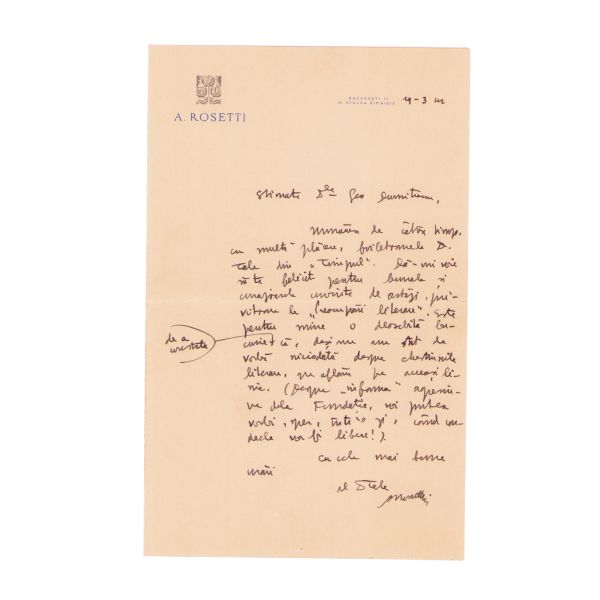 A. ROSETTI
BUCUREȘTI III
STRADA DIONISIE
19-3
Stimate Dle Geo Dumitrescu,
Urmăresc de câtva timp,
cu multă plăcere, foiletoanele D.
tale din „Timpul”. Dă-mi voie
să te felicit pentru bunele și
curajoasele cuvinte de astăzi, pri-
vitoare la „Preocupări literare”. Este
pentru mine o deosebită bu-
de a
constata
curie că, deși nu am stat de
vorbă niciodată despre chestiunile
literare, ne aflăm pe aceeași li-
nie. (Despre „informa” agresiu-
ne dela Fundație, voi putea
vorbi, sper, într'o zi, când con-
deele vor fi libere!).
cu cele mai bune
urări
al D tale
ARosetti